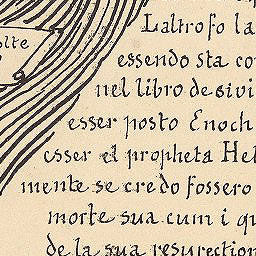 olte
Laltro fo la
essendo sta co
nel libro de sivi
esser posto Enoch
esser el propheta Hel
mente se credo fossero
morte sua cum i qu
de la sua resurection